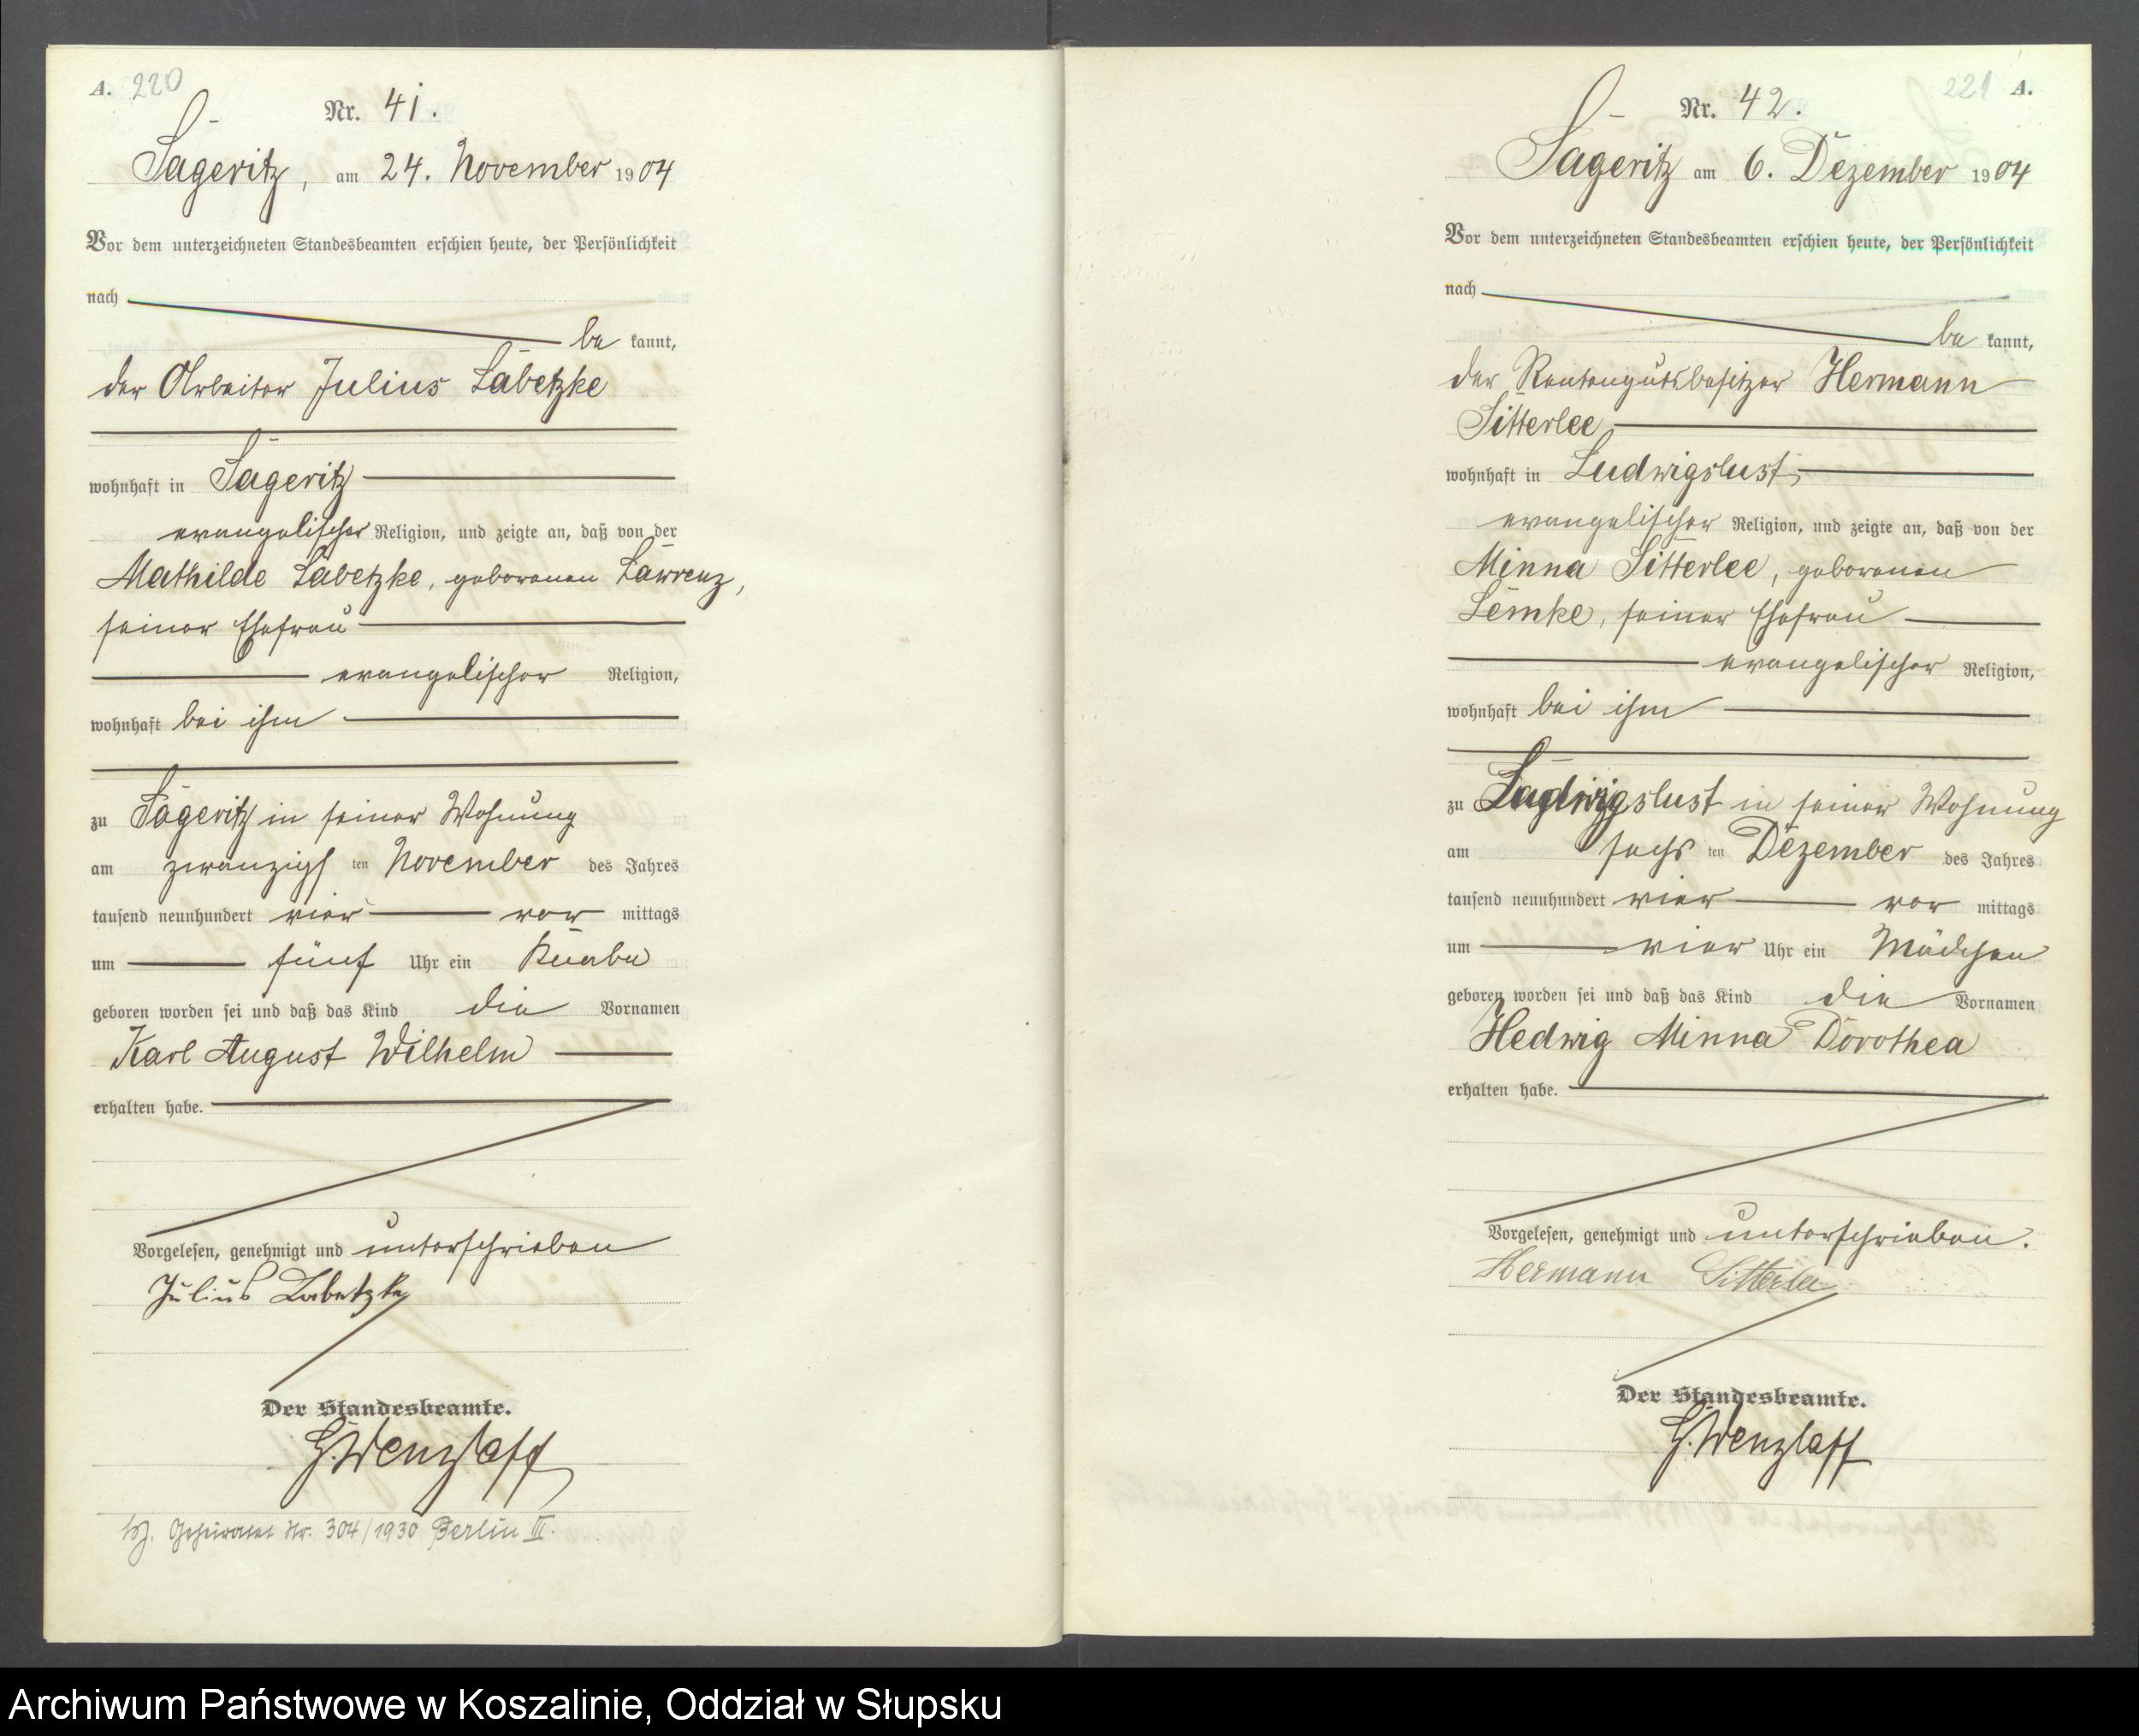 A. 220
Nr. 41.
Sageritz, am 24. November 1904
Vor dem unterzeichneten Standesbeamten erschien heute, der Persönlichkeit
nach
be kannt,
der Arbeiter Julius Labetzke
wohnhaft in Sageritz
evangelischer Religion, und zeigte an, daß von der
Mathilde Labetzke, geborenen Lawrenz,
seiner Ehefrau
evangelischer Religion,
wohnhaft bei ihm
zu Sageritz in seiner Wohnung
am zwanzigs ten November des Jahres
tausend neunhundert vier vor mittags
um fünf Uhr ein Knabe
geboren worden sei und daß das Kind die Vornamen
Karl August Wilhelm
erhalten habe.
Vorgelesen, genehmigt und unterschrieben
Julius Labetzke
Der Standesbeamte.
G. Wenzlaff
Nr. 304/1930 Berlin III.
221 A.
Nr. 42.
Sageritz am 6. Dezember 1904
Vor dem unterzeichneten Standesbeamten erschien heute, der Persönlichkeit
nach
be kannt,
der Rentengutsbesitzer Hermann
Sitterlee
wohnhaft in Ludwigslust,
evangelischer Religion, und zeigte an, daß von der
Minna Sitterlee, geborenen
Lemke, seiner Ehefrau
evangelischer Religion,
wohnhaft bei ihm
zu Ludwigslust in seiner Wohnung
am sechs ten Dezember des Jahres
tausend neunhundert vier vor mittags
um vier Uhr ein Mädchen
geboren worden sei und daß das Kind die Vornamen
Hedwig Minna Dorothea
erhalten habe.
Vorgelesen, genehmigt und unterschrieben.
Hermann Sitterlee
Der Standesbeamte.
G. Wenzlaff
Archiwum Państwowe w Koszalinie, Oddział w Słupsku